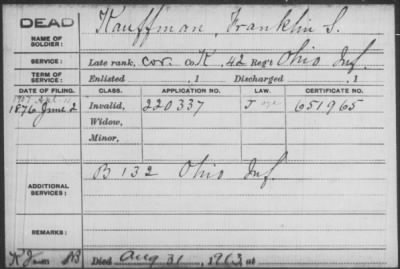 DEAD
NAME OF SOLDIER: Kauffman, Franklin S.
SERVICE: Late rank, Cor. Co. K, 42 Reg't Ohio Inf.
TERM OF SERVICE: Enlisted , 1 Discharged , 1
DATE OF FILING. CLASS. APPLICATION NO. LAW. CERTIFICATE NO.
1876 June 2 Invalid, 220337 651965
Widow,
Minor,
ADDITIONAL SERVICES: B 132 Ohio Inf.
REMARKS:
Died Aug 31, 1903, at